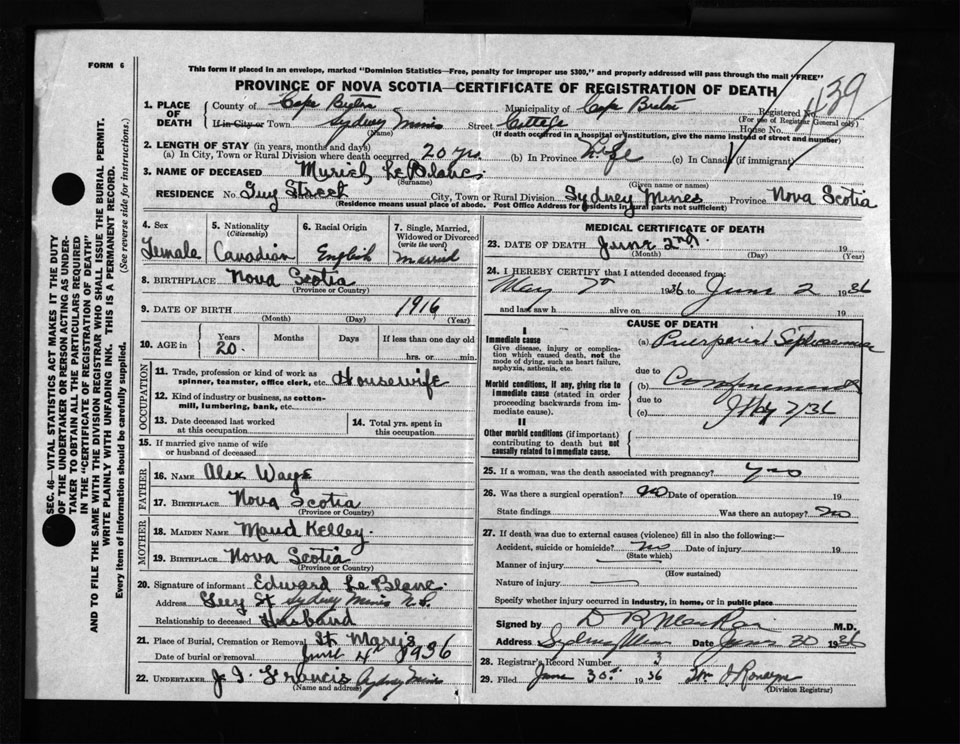 FORM 6
This form if placed in an envelope, marked "Dominion Statistics—Free, penalty for improper use $300," and properly addressed will pass through the mail "FREE"
PROVINCE OF NOVA SCOTIA—CERTIFICATE OF REGISTRATION OF DEATH
439
1. PLACE OF DEATH County of Cape Breton Municipality of Cape Breton Registered No.
(For use of Registrar General only)
If in City or Town Sydney Mines Street Cottage House No.
(Name) (If death occurred in a hospital or institution, give the name instead of street and number)
2. LENGTH OF STAY (in years, months and days)
(a) In City, Town or Rural Division where death occurred 20 yrs. (b) In Province Life (c) In Canada (if immigrant)
3. NAME OF DECEASED Le Blanc
(Surname) (Given name or names)
RESIDENCE No. Guy Street City, Town or Rural Division Sydney Mines Province Nova Scotia
(Residence means usual place of abode. Post Office Address for residents in rural parts not sufficient)
4. Sex 5. Nationality (Citizenship) 6. Racial Origin 7. Single, Married, Widowed or Divorced (write the word)
Female Canadian English Married
8. BIRTHPLACE Nova Scotia
(Province or Country)
9. DATE OF BIRTH 1916
(Month) (Day) (Year)
10. AGE in Years Months Days If less than one day old
20 hrs. or min.
OCCUPATION
11. Trade, profession or kind of work as spinner, teamster, office clerk, etc. Housewife
12. Kind of industry or business, as cotton-mill, lumbering, bank, etc.
13. Date deceased last worked at this occupation 14. Total yrs. spent in this occupation
15. If married give name of wife or husband of deceased
FATHER
16. NAME Alex
17. BIRTHPLACE Nova Scotia
(Province or Country)
MOTHER
18. MAIDEN NAME Maud Kelley
19. BIRTHPLACE Nova Scotia
(Province or Country)
20. Signature of informant Edward Le Blanc
Address Guy St Sydney Mines N.S.
Relationship to deceased Husband
21. Place of Burial, Cremation or Removal St. Mary's
Date of burial or removal June 4th 1936
22. UNDERTAKER J. J. Francis Sydney Mines
(Name and address)
MEDICAL CERTIFICATE OF DEATH
23. DATE OF DEATH June 2nd 19
(Month) (Day) (Year)
24. I HEREBY CERTIFY that I attended deceased from:
May 1936 to June 2 1936
and last saw h alive on 19
CAUSE OF DEATH
I
Immediate cause
Give disease, injury or complication which caused death, not the mode of dying, such as heart failure, asphyxia, asthenia, etc.
(a) Puerperal Septicaemia
due to
Morbid conditions, if any, giving rise to immediate cause (stated in order proceeding backwards from immediate cause).
(b) Confinement
due to
(c)
II
Other morbid conditions (if important) contributing to death but not causally related to immediate cause.
25. If a woman, was the death associated with pregnancy? Yes
26. Was there a surgical operation? no Date of operation 19
State findings Was there an autopsy? No
27. If death was due to external causes (violence) fill in also the following:—
Accident, suicide or homicide? no Date of injury 19
(State which)
Manner of injury
(How sustained)
Nature of injury
Specify whether injury occurred in industry, in home, or in public place
Signed by M.D.
Address Sydney Mines Date June 30 1936
28. Registrar's Record Number 3
29. Filed June 30th 1936
(Division Registrar)
SEC. 46—VITAL STATISTICS ACT MAKES IT THE DUTY
OF THE UNDERTAKER OR PERSON ACTING AS UNDER-
TAKER TO OBTAIN ALL THE PARTICULARS REQUIRED
IN THE "CERTIFICATE OF REGISTRATION OF DEATH"
AND TO FILE THE SAME WITH THE DIVISION REGISTRAR WHO SHALL ISSUE THE BURIAL PERMIT.
WRITE PLAINLY WITH UNFADING INK. THIS IS A PERMANENT RECORD.
Every item of information should be carefully supplied. (See reverse side for instructions.)